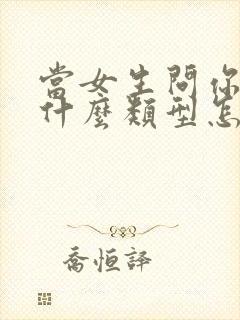 當女生問你
什麼類型怎
喬恒譯